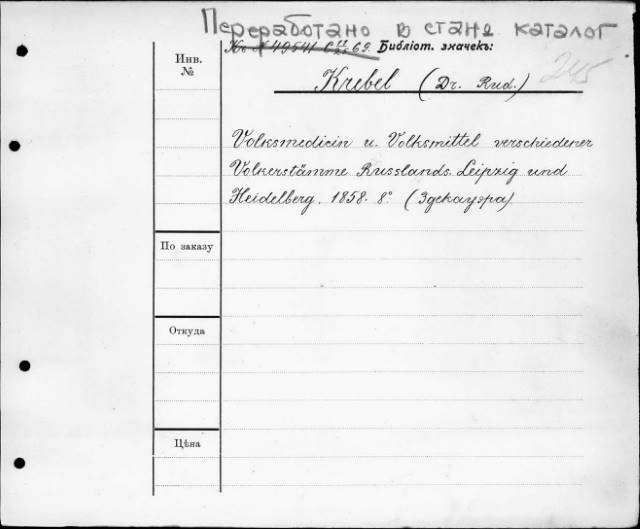 Переработано в станд каталог
Библіот. значекъ:
Инв.
№
Krebel (Dr. Rud.)
245
Volksmedicin u. Volksmittel verschiedener
Volkerstämme Russlands. Leipzig und
Heidelberg. 1858. 8° (Здекауэра)
По заказу
Откуда
Цѣна